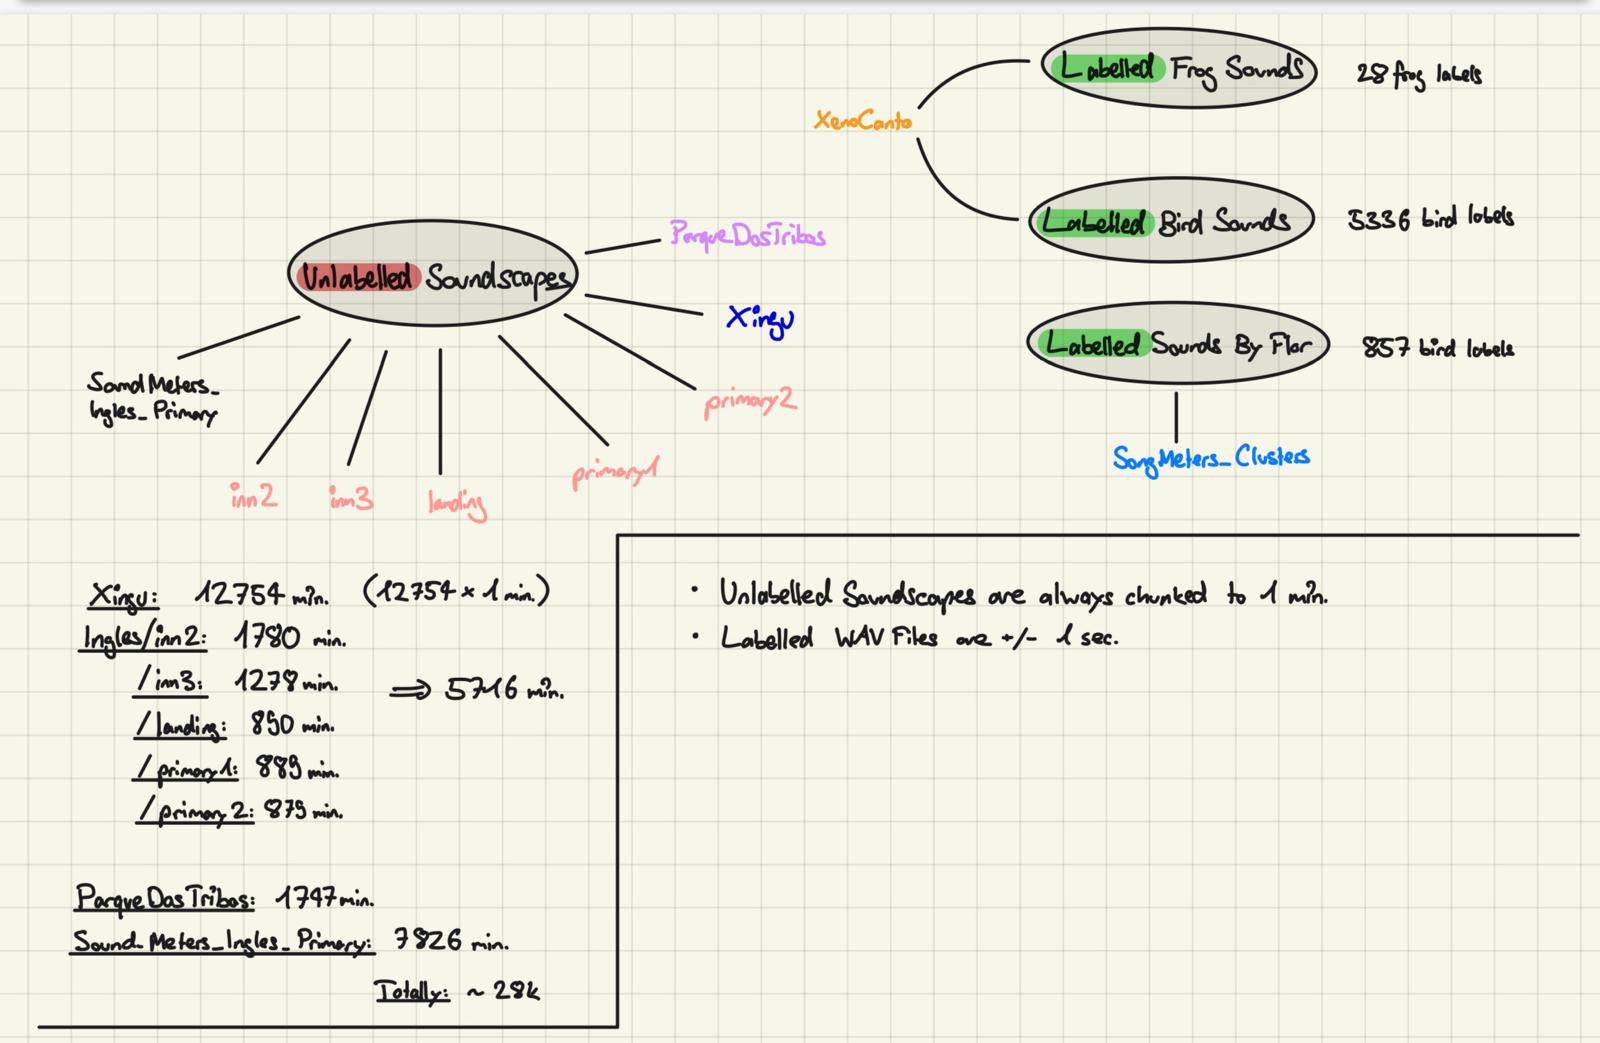 Labelled Frog Sounds
28 frog labels
XenoCanto
Labelled Bird Sounds
5336 bird labels
Labelled Sounds By Flor
857 bird labels
SongMeters_Clusters
Unlabelled Soundscapes
ParqueDosTribos
Xingu
primary2
primary1
landing
inn3
inn2
SoundMeters_
Ingles_Primary
Xingu: 12754 min. (12754 x 1 min.)
Ingles/inn2: 1780 min.
/inn3: 1278 min. ⇒ 5716 min.
/landing: 890 min.
/primary1: 889 min.
/primary2: 879 min.
ParqueDosTribos: 1747 min.
Sound_Meters_Ingles_Primary: 7826 min.
Totally: ~ 28k
• Unlabelled Soundscapes are always chunked to 1 min.
• Labelled WAV Files are +/- 1 sec.